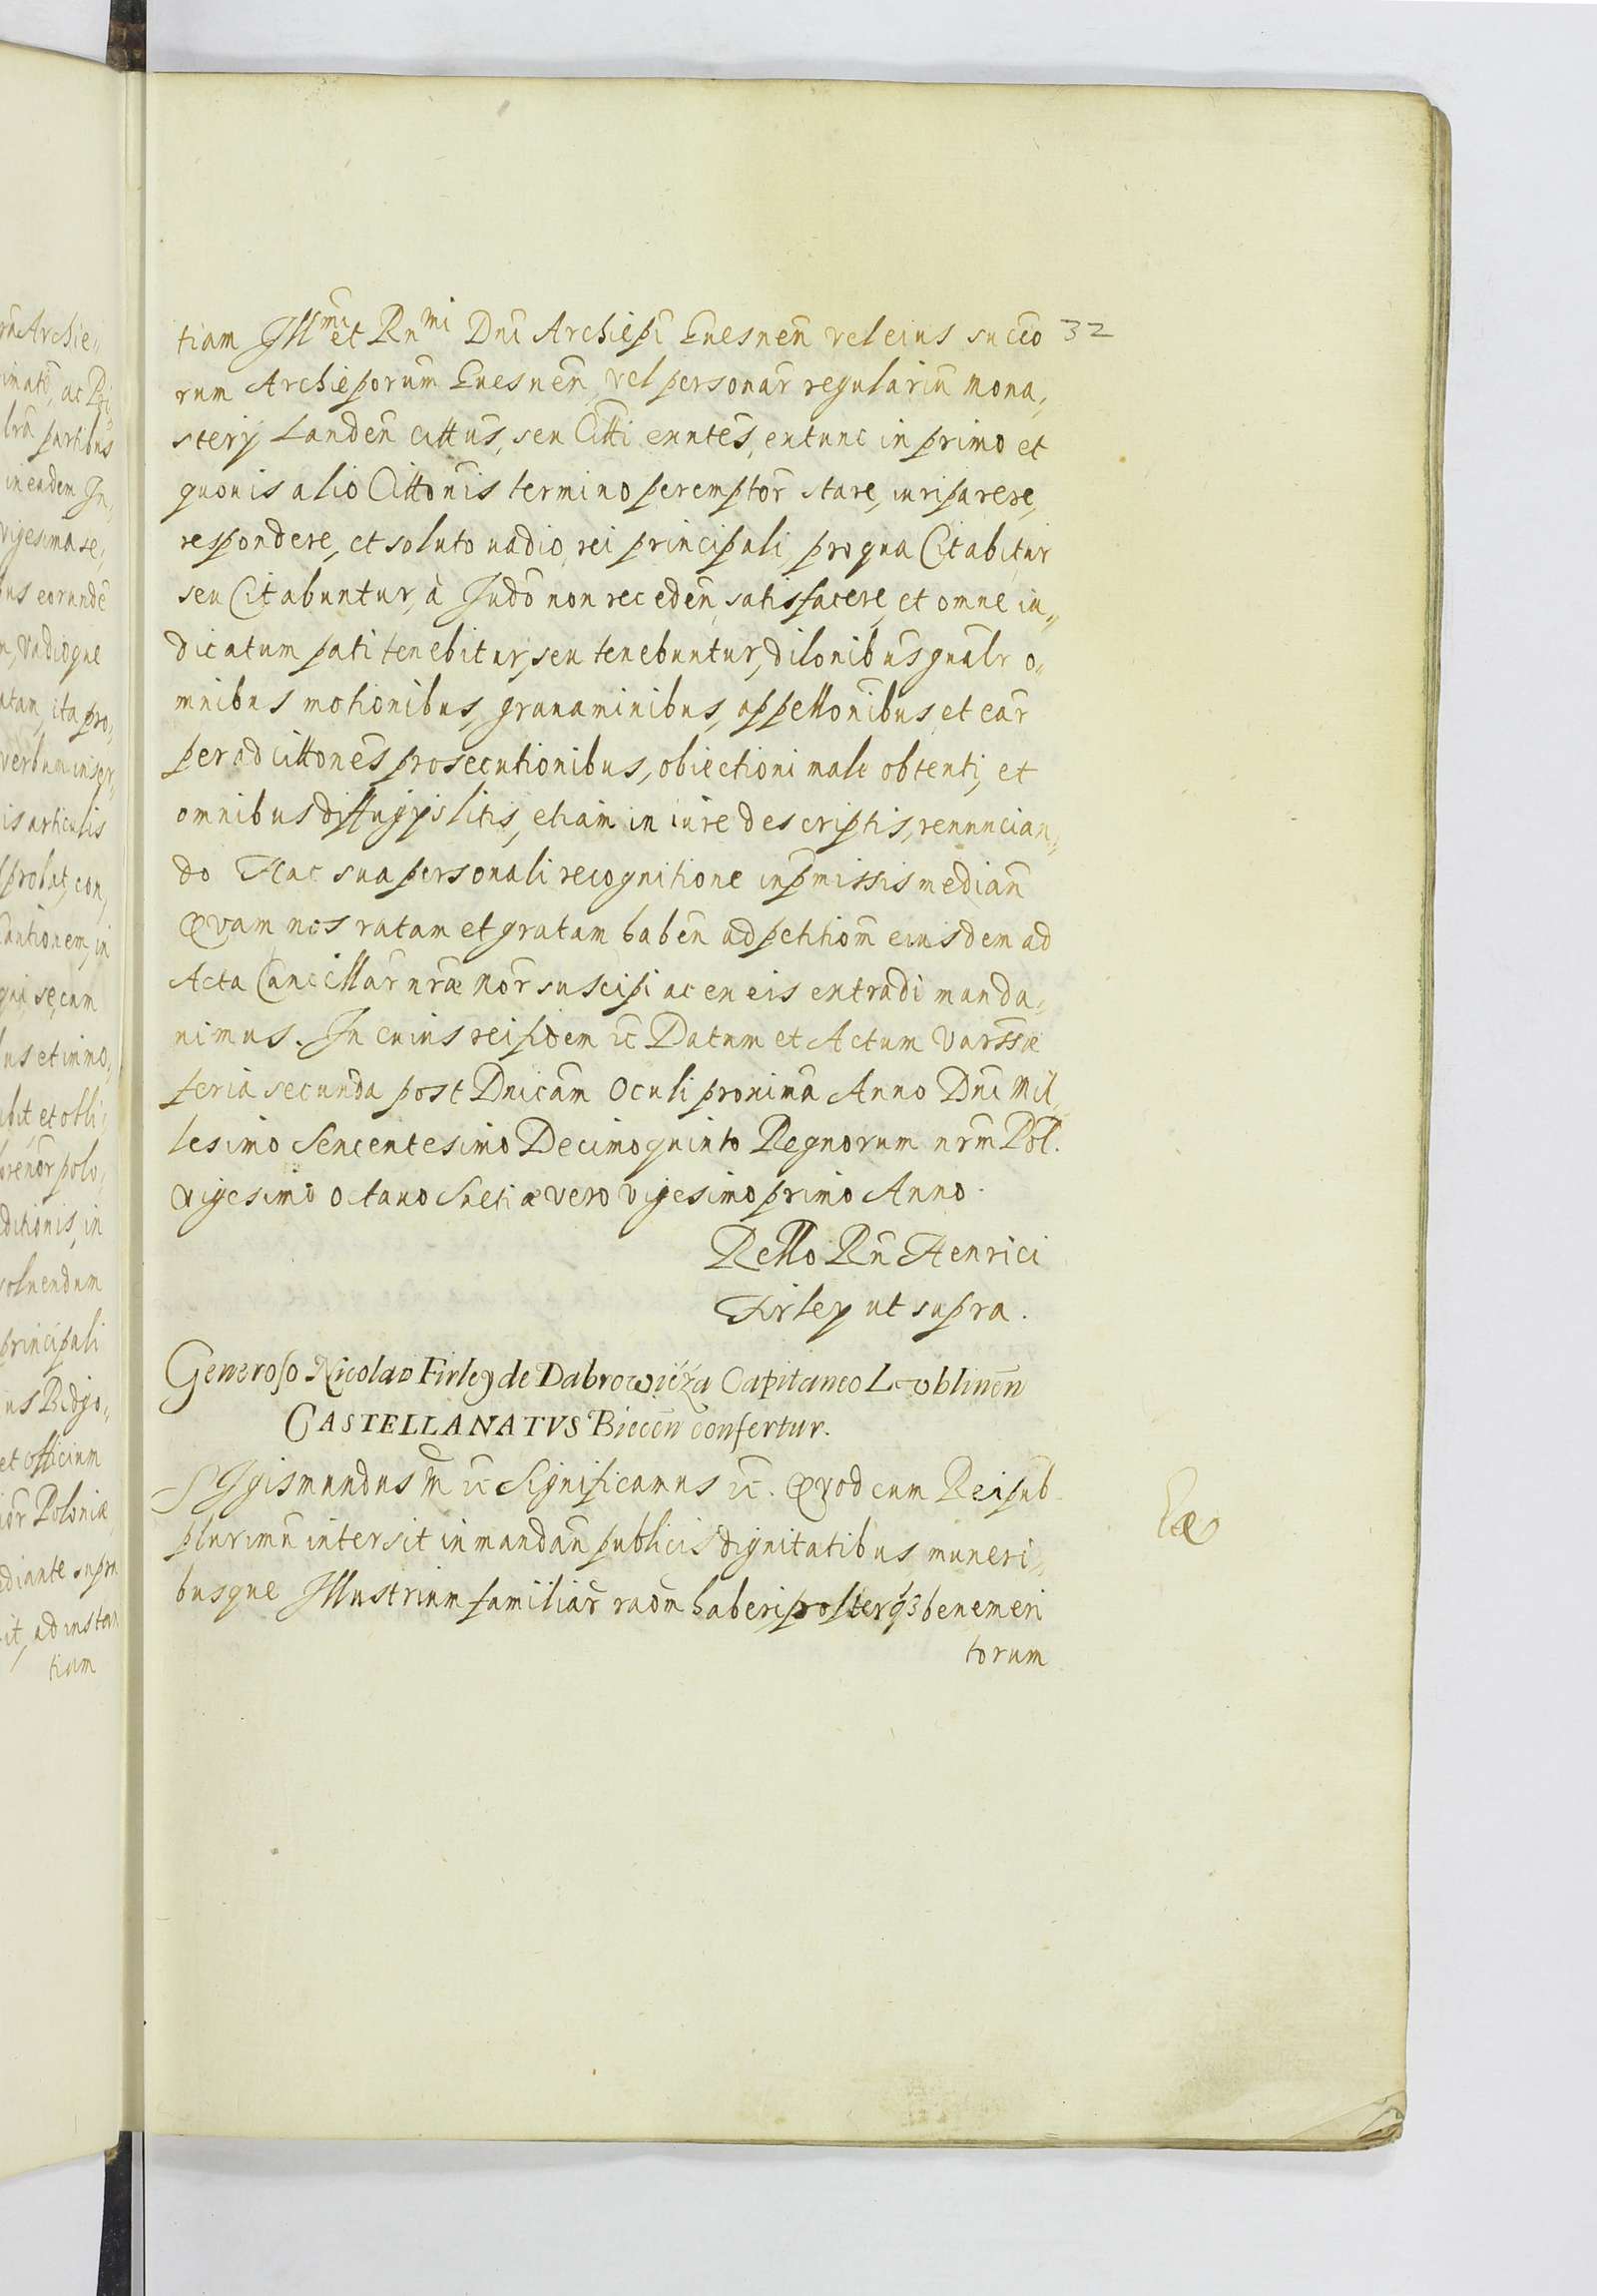 tiam Illmi et Rnmi Dni Archiepi Gnesnen̄ vel eius succo 32
rum Archieporum Gnesnen̄, vel personar̄ regulariū mona„
sterij Landen̄ cittus, seu Citti exntes, extunc in primo et
quouis alio Cittonis termino peremptor̄ stare, iuri parere,
respondere, et soluto uadio, rei principali, pro qua Citabitur
seu Citabuntur, à Iudō non receden̄, satisfacere, et omne iu„
dicatum pati tenebitur, seu tenebuntur, dilonibus gnalr o„
mnibus motionibus, grauaminibus, appellonibus, et ear̄
per ad cittones prosecutionibus, obiectioni male obtenti, et
omnibus diffugijs litis, etiam in iure descriptis, renuncian„
do Hac sua personali recognitione in pmissis median̄
Qvam nos ratam et gratam haben̄ ad petitiom eiusdem ad
Acta Cancellar̄ nræ Mor̄ suscipi ac ex eis extradi manda„
uimus. In cuius rei fidem ꝛc Datum et Actum Varssæ
feria secunda post Dnicam Oculi proxima Anno Dni Mil„
lesimo Sexcentesimo Decimoquinto Regnorum nrm Pol.
Vigesimo octauo Suetiæ vero Vigesimo primo Anno.
Rello Rn̄ Henrici
Firley ut supra.
Generoso Nicolao Firley de Dabrowieża Capitaneo Lvblinen̄
CASTELLANATVS Biecen̄ confertur.
SIgismundus 3͞ ꝛc Significamus ꝛc. Qvod cum Reipub
plurimū intersit in mandan̄ publicis dignitatibus, muneri„
busque Illustrium familiar̄ raōm haberi, proster qз benemeri
torum